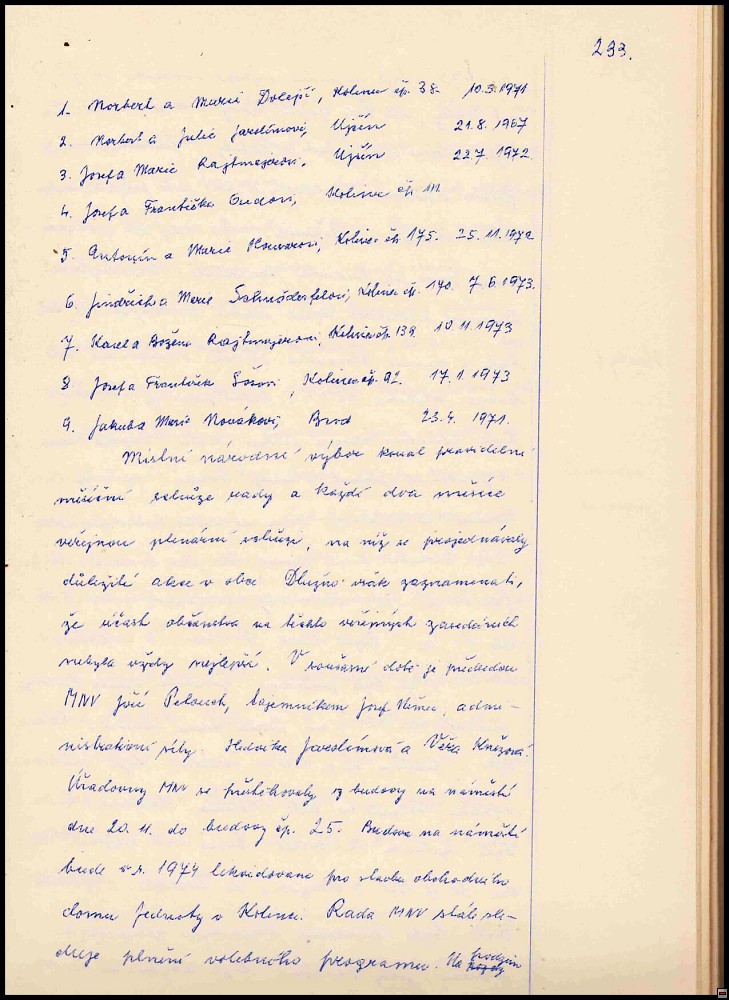 293.
1. Norbert a Marie Dolejší, Kolinec čp. 38. 10.3.1971
2. Norbert a Julie Jarolímovi, Ujčín 21.8.1967
3. Josef a Marie Rajtmajerovi, Ujčín 22.7.1972.
4. Josef a Františka Oudovi, Kolinec čp. 111
5. Antonín a Marie Kovarovi, Kolinec čp. 175. 25.11.1972
6. Jindřich a Marie Schnöderfelovi, Kolinec čp. 140. 7.6.1973.
7. Karel a Božena Rajtmajerovi, Kolinec čp. 139. 10.11.1973
8. Josef a Františk , Kolinec čp. 92. 17.1.1973
9. Jakub a Marie Novákovi, Brod 23.4.1971.
Místní národní výbor konal pravidelné
měsíční schůze rady a každé dva měsíce
veřejnou plenární schůzi, na níž se projednávaly
důležité akce v obci Dlužno však zaznamenati,
že účast občanstva na těchto veřejných zasedáních
nebyla vždy nejlepší. V současné době je předsedou
MNV Jiří Pelouch, tajemníkem Josef Němec, admi-
nistrativní síly Hedvika Jarolímová a Věra Kněžová.
Úřadovny MNV se přestěhovaly z budovy na náměstí
dne 20.11. do budovy čp. 25. Budova na náměstí
bude v r. 1974 likvidována pro stavbu obchodního
domu Jednoty v Kolinci. Rada MNV stále sle-
duje plnění volebního programu. Na